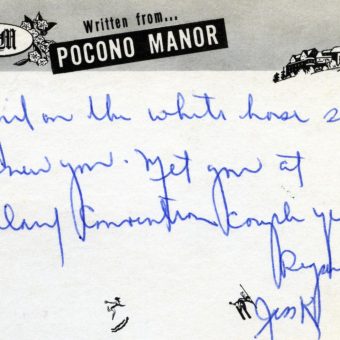 M
Written from...
POCONO MANOR
on the white horse
knew you. Met you at
Convention couple ye
Jess K